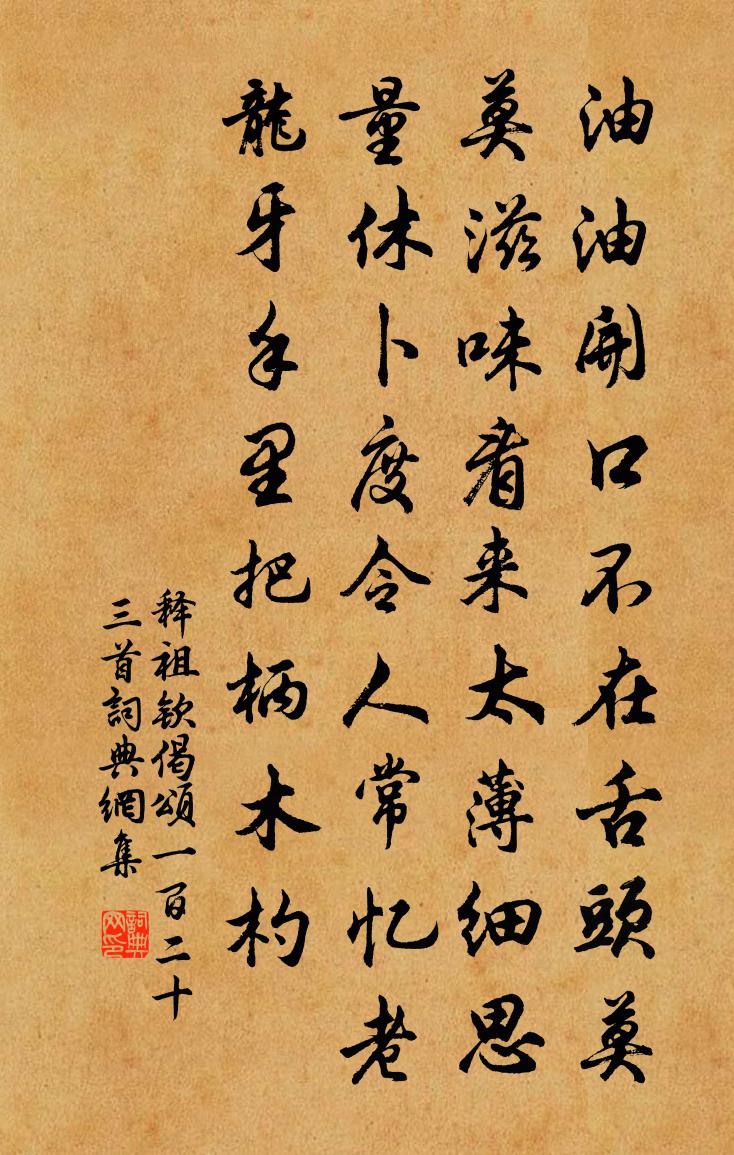 油油開口不在舌頭莫
莫滋味看来太薄細思
量休卜度令人常忆老
龍牙手里把柄木杓
释祖欽偈頌一百二十
三首詞典網集
詞典网印